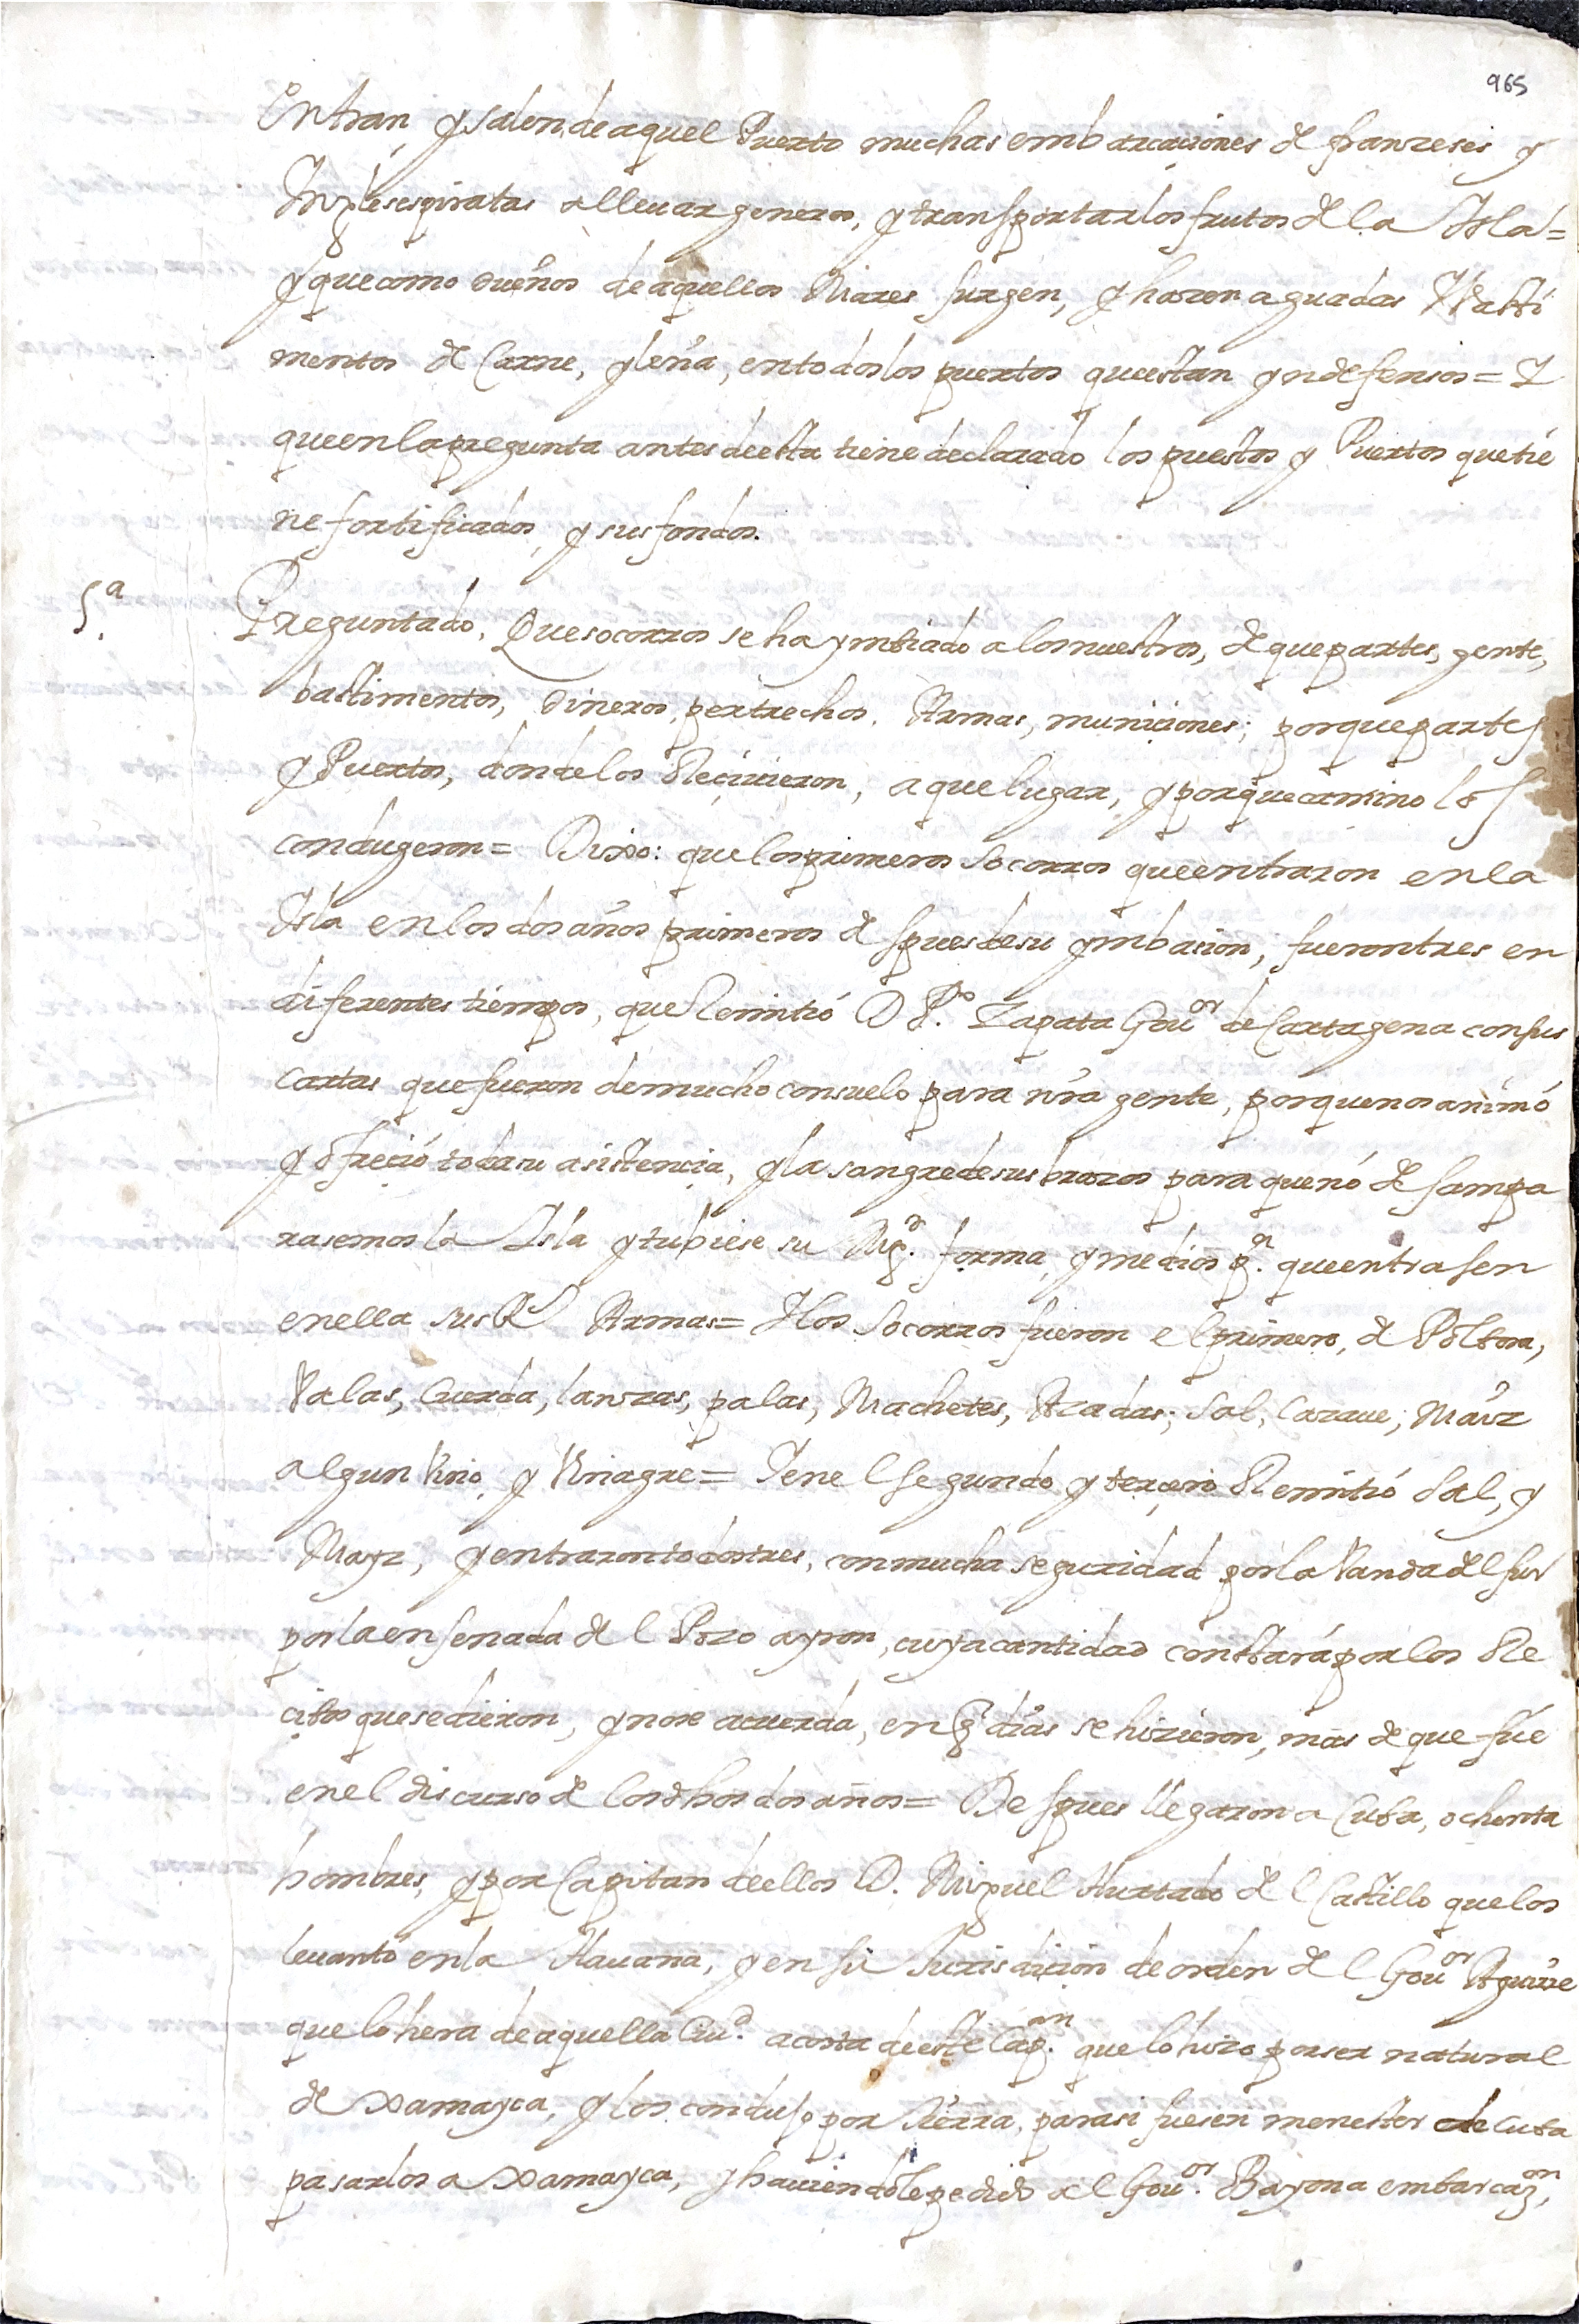 965
Entran, y salen de aquel Puerto muchas embarcaciones de franzeses y
Ynglesespiratas a lleuar generos, y transportar los frutos de la Isla=
y que como dueños de aquellos Mares surgen, y hazen aguadas Vasti
mentos de Carne, y leña, en todos los puertos que estan yndefensos= Y
que en la pregunta antes de esta tiene declarado los puestos y Puertos que tie
ne fortificados, y sus fondos.
5.ª Preguntado. Que socorros se ha ymbiado a los nuestros, de que partes, gente,
bastimentos, dineros, pertrechos, Armas, municiones; por que partes
y Puertos, donde los Reciuieron, a que lugar, y por que camino los
condugeron= Dixo: que los primeros Socorros que entraron en la
Isla en los dos años primeros despues de su ymbacion, fueron tres en
diferentes tiempos, que Remitió D P.º Zapata Gou.or de Cartagena con sus
cartas que fueron de mucho consuelo para nra gente, porque nos animó
y ofreció toda su asistencia, y la sangre de sus brazos para que nó desampa
rasemos la Isla y tubiese su Mg.d forma, y medios p.a que entrasen
en ella sus Rs Armas= Y los Socorros fueron el primero, de Polbora,
Valas, Cuerda, lanzas, palas, Machetes, Azadas; Sal, Cazaue, Maiz
algun Vino, y Vinagre= Y en el segundo y terçero Remitió Sal, y
Mayz, y entraron todos tres, con mucha seguridad por la Vanda del sur
por la ensenada del Pozo ayron, cuya cantidad constará por los Re
cibos que se dieron, y no se acuerda, en q dias se hizieron, mas de que fue
en el discurso de los dhos dos años= Despues llegaron a Cuba, ochenta
hombres, y por Capitan de ellos D. Miguel Hurtado del Castillo que los
leuantó en la Hauana, y en su Jurisdicion de orden del Gou.or Aguirre
que lo hera de aquella Ciu.d a costa de este Cap.an que lo hizo por ser natural
de Xamayca, y los condujo por tierra, para si fuesen menester de Cuba
pasarlos a Xamayca, y hauiendole pedido al Gou.or Bayona embarcaz.on,